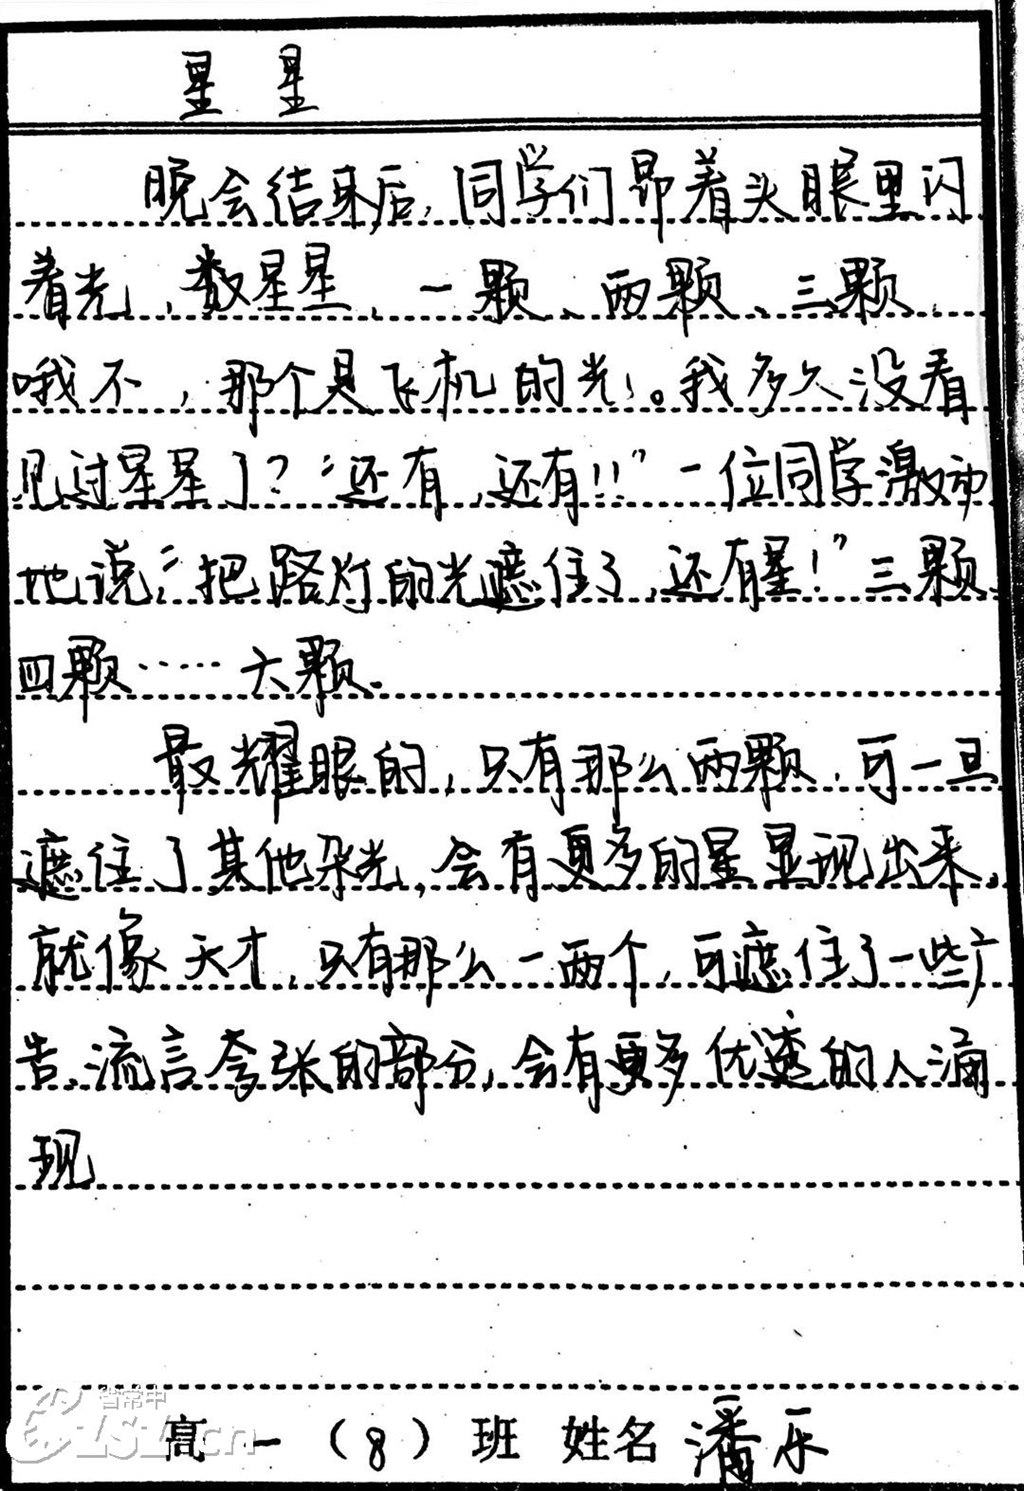 星星
晚会结束后,同学们昂着头眼里闪
着光,数星星,一颗、两颗、三颗,
哦不,那个是飞机的光。我多久没看
见过星星了?“还有,还有!!”一位同学激动
地说,“把路灯的光遮住了,还有星!”三颗、
四颗……六颗。
最耀眼的,只有那么两颗,可一旦
遮住了其他杂光,会有更多的星显现出来,
就像天才,只有那么一两个,可遮住了一些广
告、流言夸张的部分,会有更多优秀的人涌
现
高一(8)班 姓名 潘乐
省常中